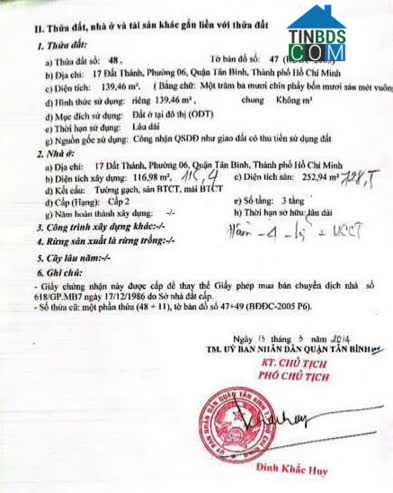 TINBDS
COM
II. Thửa đất, nhà ở và tài sản khác gắn liền với thửa đất
1. Thửa đất:
a) Thửa đất số: 48, Tờ bản đồ số: 47
b) Địa chỉ: 17 Đất Thánh, Phường 06, Quận Tân Bình, Thành phố Hồ Chí Minh
c) Diện tích: 139,46 m². (Bằng chữ: Một trăm ba mươi chín phẩy bốn mươi sáu mét vuông
d) Hình thức sử dụng: riêng 139,46 m², chung Không m²
đ) Mục đích sử dụng: Đất ở tại đô thị (ODT)
e) Thời hạn sử dụng: Lâu dài
g) Nguồn gốc sử dụng: Công nhận QSDĐ như giao đất có thu tiền sử dụng đất
2. Nhà ở:
a) Địa chỉ: 17 Đất Thánh, Phường 06, Quận Tân Bình, Thành phố Hồ Chí Minh
b) Diện tích xây dựng: 116,98 m². c) Diện tích sàn: 252,94 m²
d) Kết cấu: Tường gạch, sàn BTCT, mái BTCT
đ) Cấp (Hạng): Cấp 2 e) Số tầng: 3 tầng
g) Năm hoàn thành xây dựng: -/- h) Thời hạn sở hữu: lâu dài
3. Công trình xây dựng khác:-/-
4. Rừng sản xuất là rừng trồng:-/-
5. Cây lâu năm:-/-
6. Ghi chú:
- Giấy chứng nhận này được cấp để thay thế Giấy phép mua bán chuyển dịch nhà số
618/GP.MB7 ngày 17/12/1986 do Sở nhà đất cấp.
- Số thửa cũ: một phần thửa (48 + 11), tờ bản đồ số 47+49 (BĐĐC-2005 P6).
Ngày 13 tháng 3 năm 2014
TM. UỶ BAN NHÂN DÂN QUẬN TÂN BÌNH
KT. CHỦ TỊCH
PHÓ CHỦ TỊCH
Đinh Khắc Huy